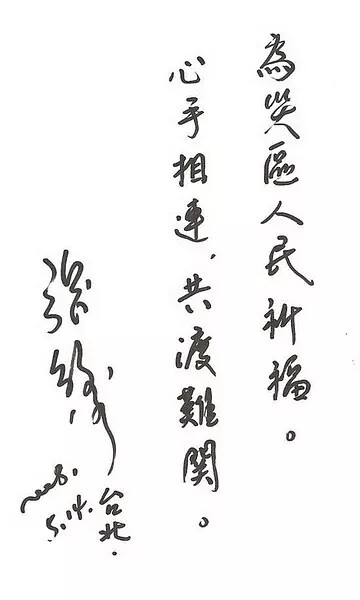 為災區人民祈福。
心手相連，共渡難関。
2008.
5.14.
台北.